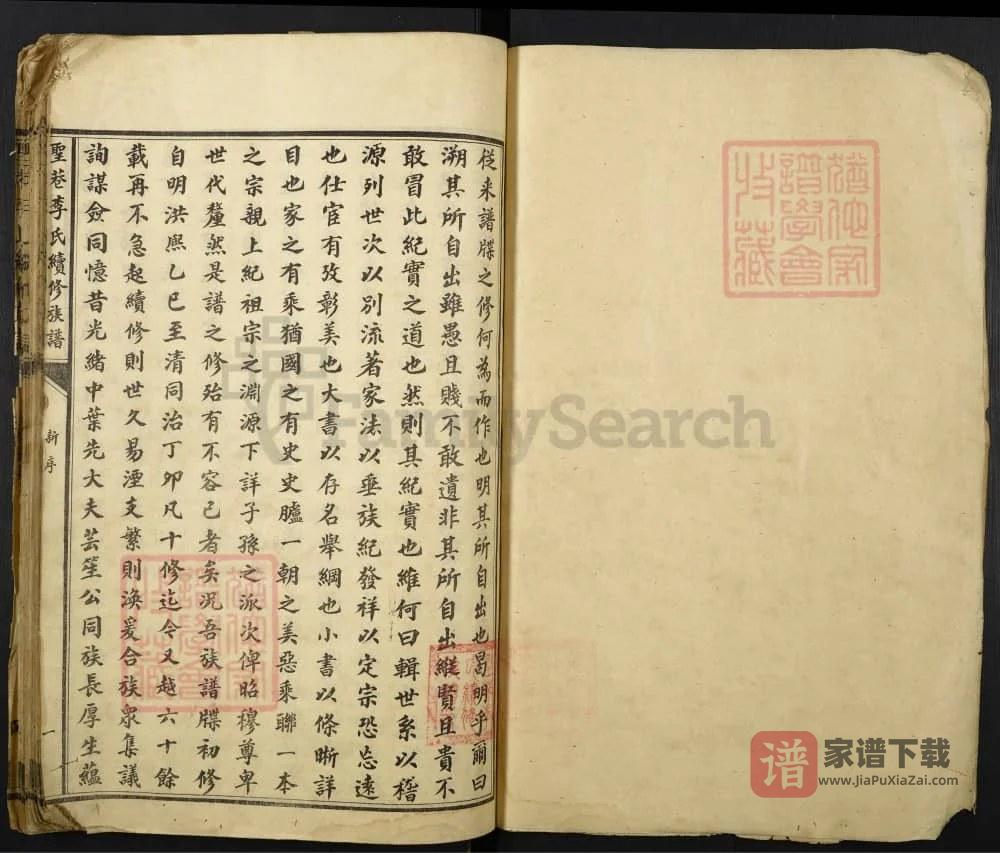 從来譜牒之修何為而作也明其所自出也曷明乎爾曰
溯其所自出雖愚且賤不敢遺非其所自出縱賢且貴不
敢冒此紀實之道也然則其紀實也維何曰輯世系以稽
源列世次以別流著家法以垂族紀發祥以定宗恐忘遠
也仕宦有攷彰美也大書以存名舉綱也小書以條晰詳
目也家之有乘猶國之有史史臚一朝之美惡乘聯一本
之宗親上紀祖宗之淵源下詳子孫之派次俾昭穆尊卑
世代釐然是譜之修殆有不容已者矣况吾族譜牒初修
自明洪熙乙巳至清同治丁卯凡十修迄今又越六十餘
載再不急起續修則世久易湮支繁則渙爰合族衆集議
詢謀僉同憶昔光緒中葉先大夫芸笙公同族長厚生蘊
聖巷李氏續修族譜
新序
一
FamilySearch
譜
家谱下载
www.JiaPuXiaZai.com